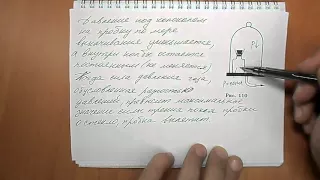 Давление под колоколом
на пробку по мере
выкачивания уменьшается,
а внутри колбы остается
постоянным (не меняется)
Когда сила давления газа,
обусловленная разностью
давлений, превысит максимальное
значение силы трения покоя пробки
о стекло, пробка вылетит
Рис. 110